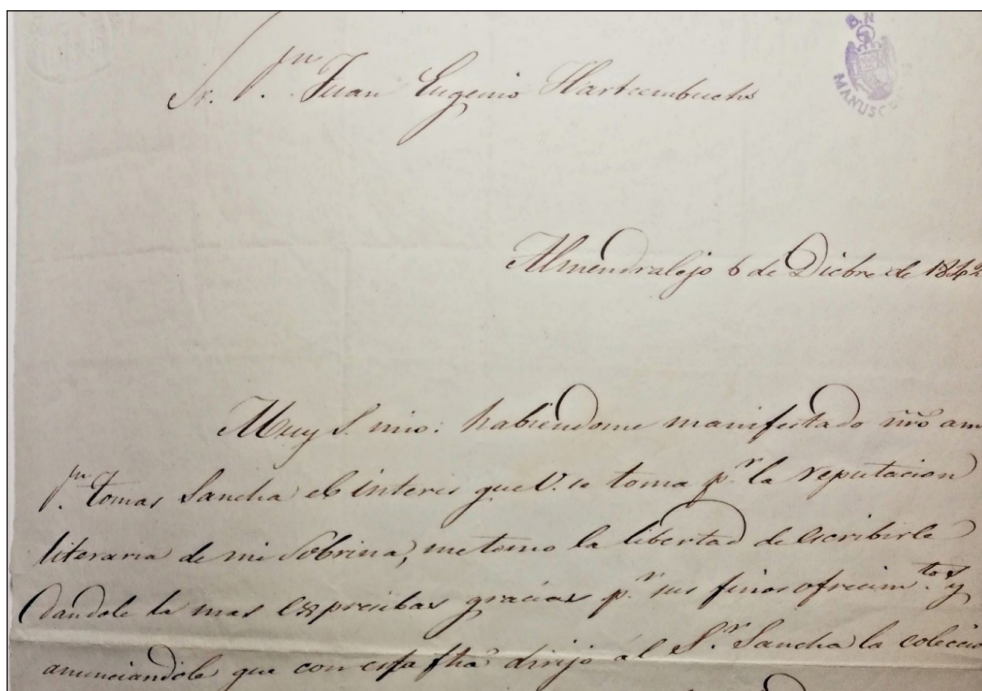 B.N.
MANUSC
Sr. Dn. Juan Eugenio Hartzembuchs
Almendralejo 6 de Dicbre de 1842
Muy S. mio: habiendome manifestado nro am
Dn. Tomas Sancha el interes que V. se toma pr. la reputacion
literaria de mi Sobrina, me tomo la libertad de escribirle
dandole la mas expresibas gracias pr. sus finos ofrecimtos. y
anunciandole que con esta fha dirijo al Sr. Sancha la colecció